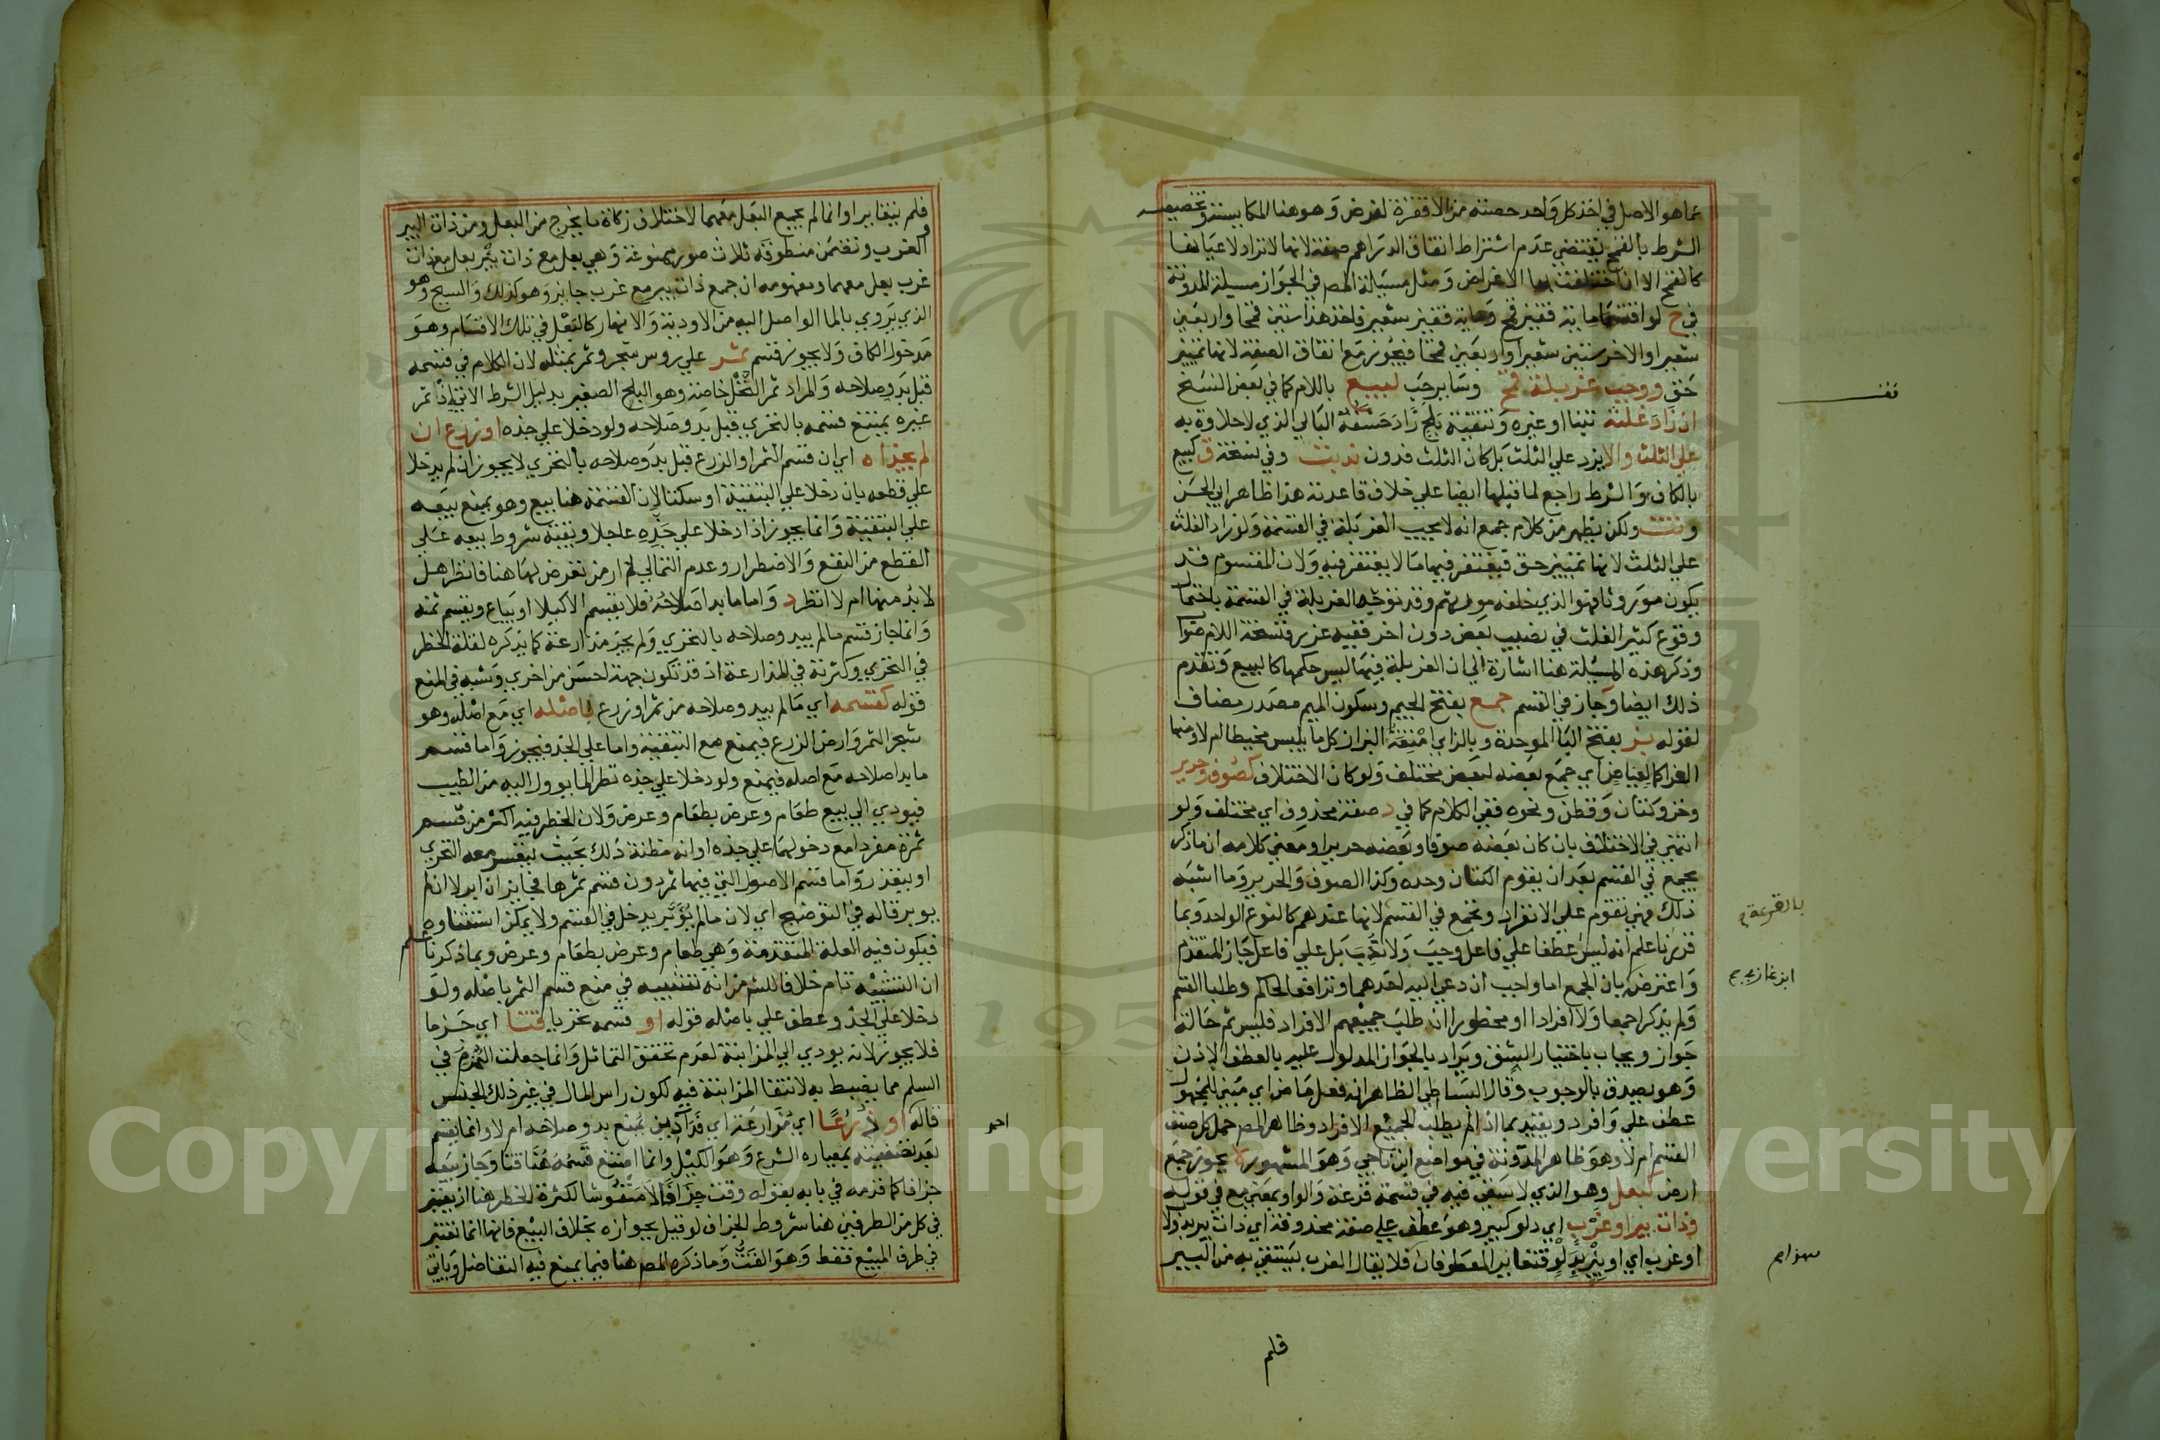 عما هو الاصل في اخذ كل واحد حصته من الاقفزة لغرض وهو هنا المكايسة وتخصيصه
الشرط بالقمح يقتضي عدم اشتراط اتفاق الدراهم صفة لانها لا تراد لاعيانها
كالقمح الا ان اختلفت بها الاغراض ومثل مسيلة المص في الجواز مسيلة المدونة
في ح لو اقتسما ماية قفيز قمح وماية قفيز شعير فاخذ هذا ستين قمحا واربعين
شعيرا والاخر ستين شعيرا واربعين قمحا فيجوز مع اتفاق الصفة لانها تمييز
حق ووجب غربلة قمح وساير حب لبيع باللام كما في بعض النسخ
ان زاد غلثه تبنا او غيره وتنقية بلح زاد حشفه البالي الذي لا حلاوة به
علي الثلث والا يزد علي الثلث بل كان الثلث فدون ندبت وفي نسخة ق كبيع
بالكاف والشرط راجع لما قبلها ايضا علي خلاف قاعدته هذا ظاهر
ولكن يظهر من كلام جمع انه لا يجب الغربلة في القسمة ولو زاد الغلث
علي الثلث لانها تمييز حق فيغتفر فيها ما لا يغتفر فيه ولان المقسوم قد
يكون موروثا فهو الذي خلفه مورثهم وقد توجه الغربلة في القسمة باحتمال
وقوع كثير الغلث في نصيب بعض دون اخر ففيه غرر فنسخة اللام صواب
وذكر هذه المسيلة هنا اشارة الي ان الغربلة فيها ليس حكمها كالبيع وتقدم
ذلك ايضا وجاز في القسم جمع بفتح الجيم وسكون الميم مصدر مضاف
لقوله بز بفتح البا الموحدة وبالزاي امتعة البزاز كل ما يلبس مخيطا ام لا ومنها
الفرا كما لعياض اي جمع بعضه لبعض مختلف ولو كان الاختلاف كصوف وحرير
وخز وكتان وقطن ونحوه ففي الكلام كما في د صفة محذوف اي مختلف ولو
انتهي في الاختلاف بان كان بعضه صوفا وبعضه حريرا ومعني كلامه ان ما ذكر
يجمع في القسم بعد ان يقوم الكتان وحده وكذا الصوف والحرير وما اشبه
ذلك فهي تقوم علي الانفراد وتجمع في القسم لانها عندهم كالنوع الواحد وبما
قررنا علم انه ليس عطفا علي فاعل وجب ولا ندب بل علي فاعل جاز المتقدم
واعترض بان الجمع اما واجب ان دعي اليه احدهما وترافعا لحاكم وطلبا القسم
ولم يذكرا جمعا ولا افرادا او محظورا ان طلب جميعهم الافراد فليس ثم حالة
جواز ويجاب باختيار الشق ويراد بالجواز المدلول عليه بالعطف الاذن
وهو يصدق بالوجوب وقال البساطي الظاهر انه فعل ماض اي مبني للمجهول
عطف علي وافرد ويقيد بما اذا لم يطلب الجميع الافراد وظاهر المص حمل كل صنف
القسم ام لا وهو ظاهر المدونة في مواضع ابن ناجي وهو المشهور كلا يجوز جمع
ارض كبعل وهو الذي لا سقي فيه في قسمة قرعة والواو بمعني مع في قوله
وذات بير او غرب اي دلو كبير وهو عطف علي صفة محذوفة اي ذات بير بدولا
او غرب اي او بير بدلو فتغاير المعطوفان فلا يقال الغرب يستقي به من البير
قفـ
بالقرعة
ابن غازي
فلم
فلم يتغايرا وانما لم يجمع البعل معهما لاختلاف زكاة ما يخرج من البعل ومن ذات البير
والغرب وتضمن منطوقه ثلاث صور ممنوعة وهي بعل مع ذات بير بعل مع ذات
غرب بعل معهما ومفهومه ان جمع ذات بير مع غرب جايز وهو كذلك والسيح وهو
الذي يروي بالما الواصل اليه من الاودية والانهار كالبعل في تلك الاقسام وهو
مدخول الكاف ولا يجوز قسم ثمر علي روس شجر وثمر بمثله لان الكلام في قسمه
قبل بدو صلاحه والمراد ثمر النخل خاصة وهو البلح الصغير بدليل الشرط الاتي اذ ثمر
غيره يمتنع قسمه بالتحري قبل بدو صلاحه ولو دخلا علي جذه او زرع ان
لم يجذاه اي ان قسم الثمر او الزرع قبل بدو صلاحه بالتحري لا يجوز ان لم يدخلا
علي قطعه بان دخلا علي التبقية او سكتا لان القسمة هنا بيع وهو يمنع بيعه
علي التبقية وانما يجوز اذا دخلا علي جذه عاجلا وبقية شروط بيعه علي
القطع من النفع والاضطرار وعدم التمالي لم ار من تعرض لها هنا فانظر هل
لا بد منها ام لا انظر د واما ما بدا صلاحه فلا يقسم الا كيلا او يباع ويقسم ثمنه
وانما جاز قسم ما لم يبد صلاحه بالتحري ولم يجز مزارعة كما يذكره لقلة الخطر
في التحري وكثرته في المزارعة اذ قد تكون جهة احسن من اخري وشبه في المنع
قوله كقسمه اي ما لم يبد صلاحه من ثمر او زرع باصله اي مع اصله وهو
شجر الثمر وارض الزرع فيمنع مع التبقية واما علي الجذ فيجوز واما قسم
ما بدا صلاحه مع اصله فيمنع ولو دخلا علي جذه نظرا لما يوول اليه من الطيب
فيودي الي بيع طعام وعرض بطعام وعرض ولان الخطر فيه اكثر من قسم
ثمره مفردا مع دخولهما علي جذه او انه مظنة ذلك بحيث يتعسر معه التحري
او يتعذر واما قسم الاصول التي فيها ثمر دون قسم ثمرها فجايز ان ابر لا ان لم
يوبر قاله في التوضيح اي لان ما لم يوبر يدخل في القسم ولا يمكن استثناوه
فيكون فيه العلة المتقدمة وهي طعام وعرض بطعام وعرض وبما ذكرنا علم
ان التشبيه تام خلافا للشم من انه تشبيه في منع قسم الثمر باصله ولو
دخلا علي الجذ وعطف علي باصله قوله او قسمه تحريا قتا اي حزما
فلا يجوز لانه يودي الي المزابنة لعدم تحقق التماثل وانما جعلت الحزم في
السلم مما يضبط به لانتفا المزابنة فيه لكون راس المال في غير ذلك الجنس
قاله او ذرعا اي مزارعة اي فدادين يمنع بدو صلاحه ام لا وانما يقسم
بعد تصفيته بمعياره الشرع وهو الكيل وانما امتنع قسمه هنا قتا وجاز بيعه
جزافا كما قدمه في بابه بقوله وقت جزافا لا منفوشا لكثرة الخطر هنا اذ يعتبر
في كل من الطرفين هنا شروط الجزاف لو قيل بجوازه بخلاف البيع فانها انما تعتبر
في طرف المبيع فقط وهو القت وما ذكره المص هنا فيما يمنع فيه التفاضل وياتي
احمد
Copyright © King Saud University